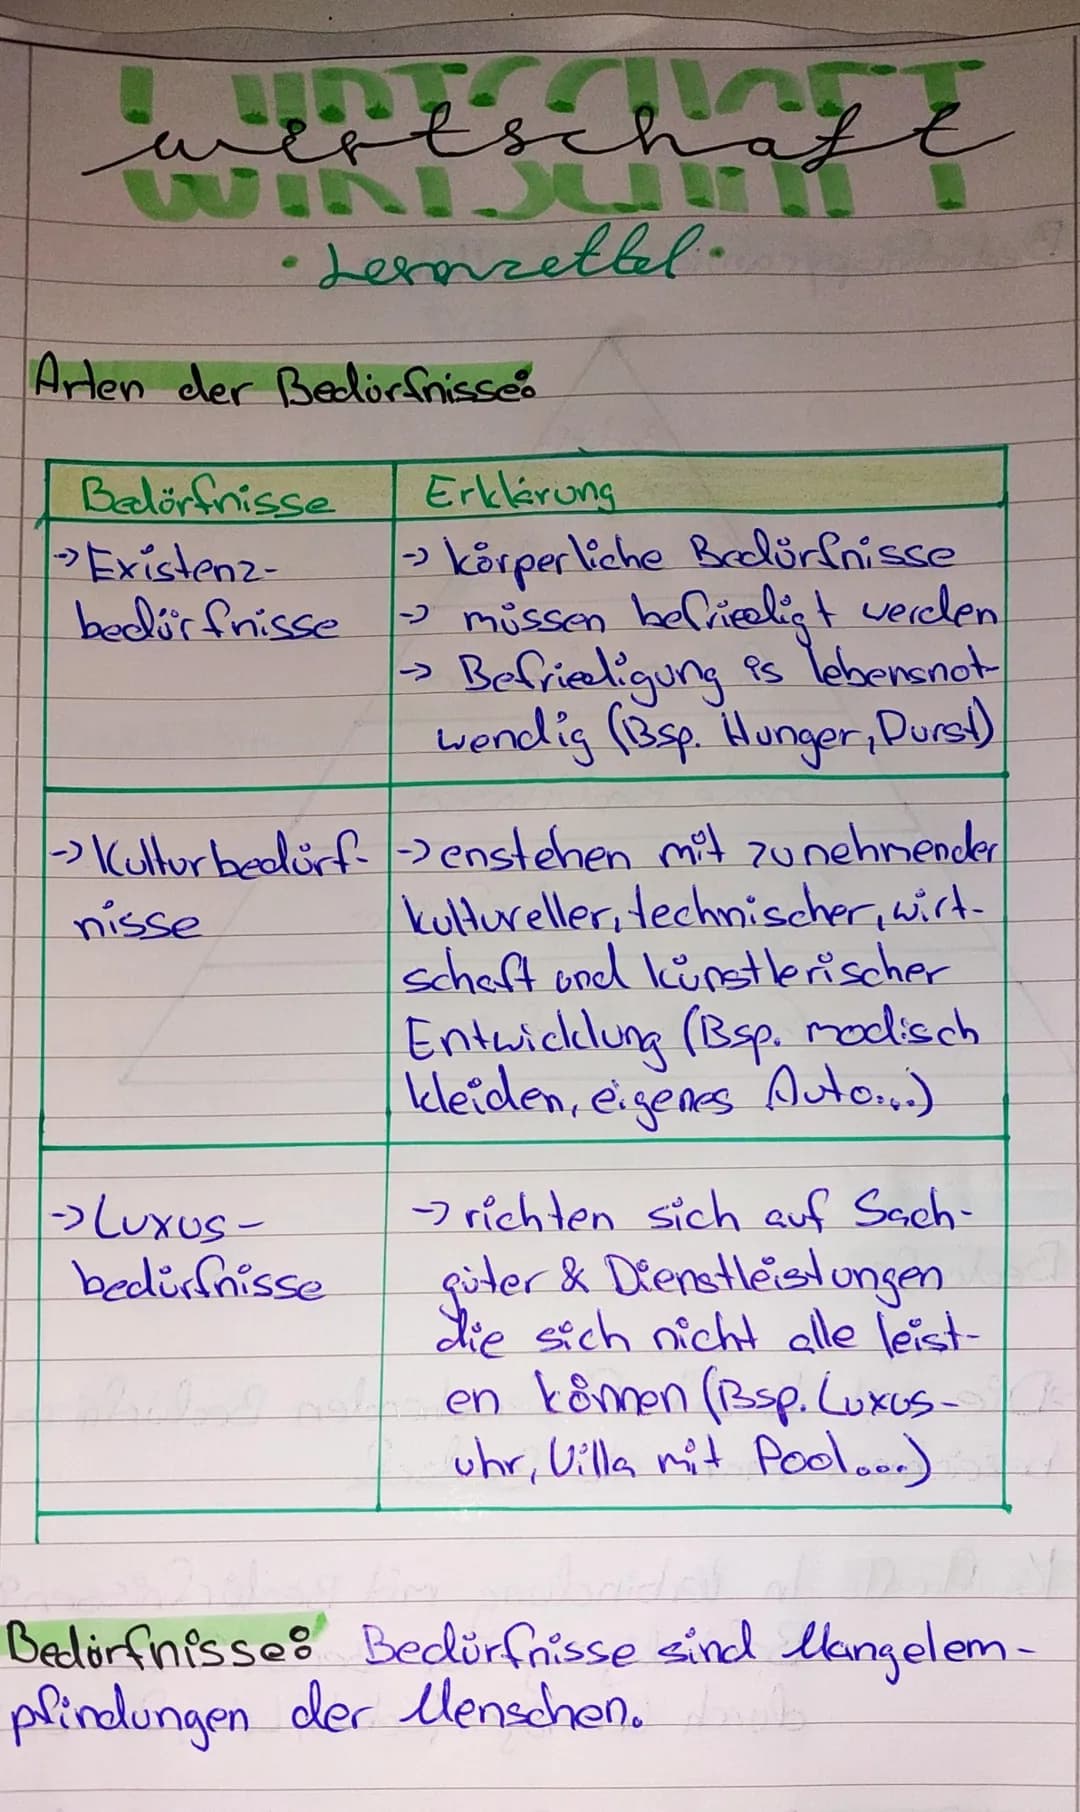 WIRTSCHAFT
wirtschaft
• Lernzettel •
Arten der Bedürfnisse:
Bedürfnisse
Erklärung
-> Existenz-
bedürfnisse
-> körperliche Bedürfnisse
-> müssen befriedigt werden
-> Befriedigung is lebensnot-
wendig (Bsp. Hunger, Durst)
-> Kulturbedürf-
nisse
-> enstehen mit zunehmender
kultureller, technischer, wirt-
schaft und künstlerischer
Entwicklung (Bsp. modisch
kleiden, eigenes Auto...)
-> Luxus-
bedürfnisse
-> richten sich auf Sach-
güter & Dienstleistungen
die sich nicht alle leist-
en können (Bsp. Luxus-
uhr, Villa mit Pool...)
Bedürfnisse: Bedürfnisse sind Mangelem-
pfindungen der Menschen.